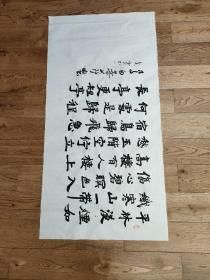 平林漠〻煙如
織寒山一帶
傷心碧暝色入
高樓有人樓上
愁玉階空佇立
宿鳥歸飛急
何處是歸程
長亭更短亭
李白菩薩蠻